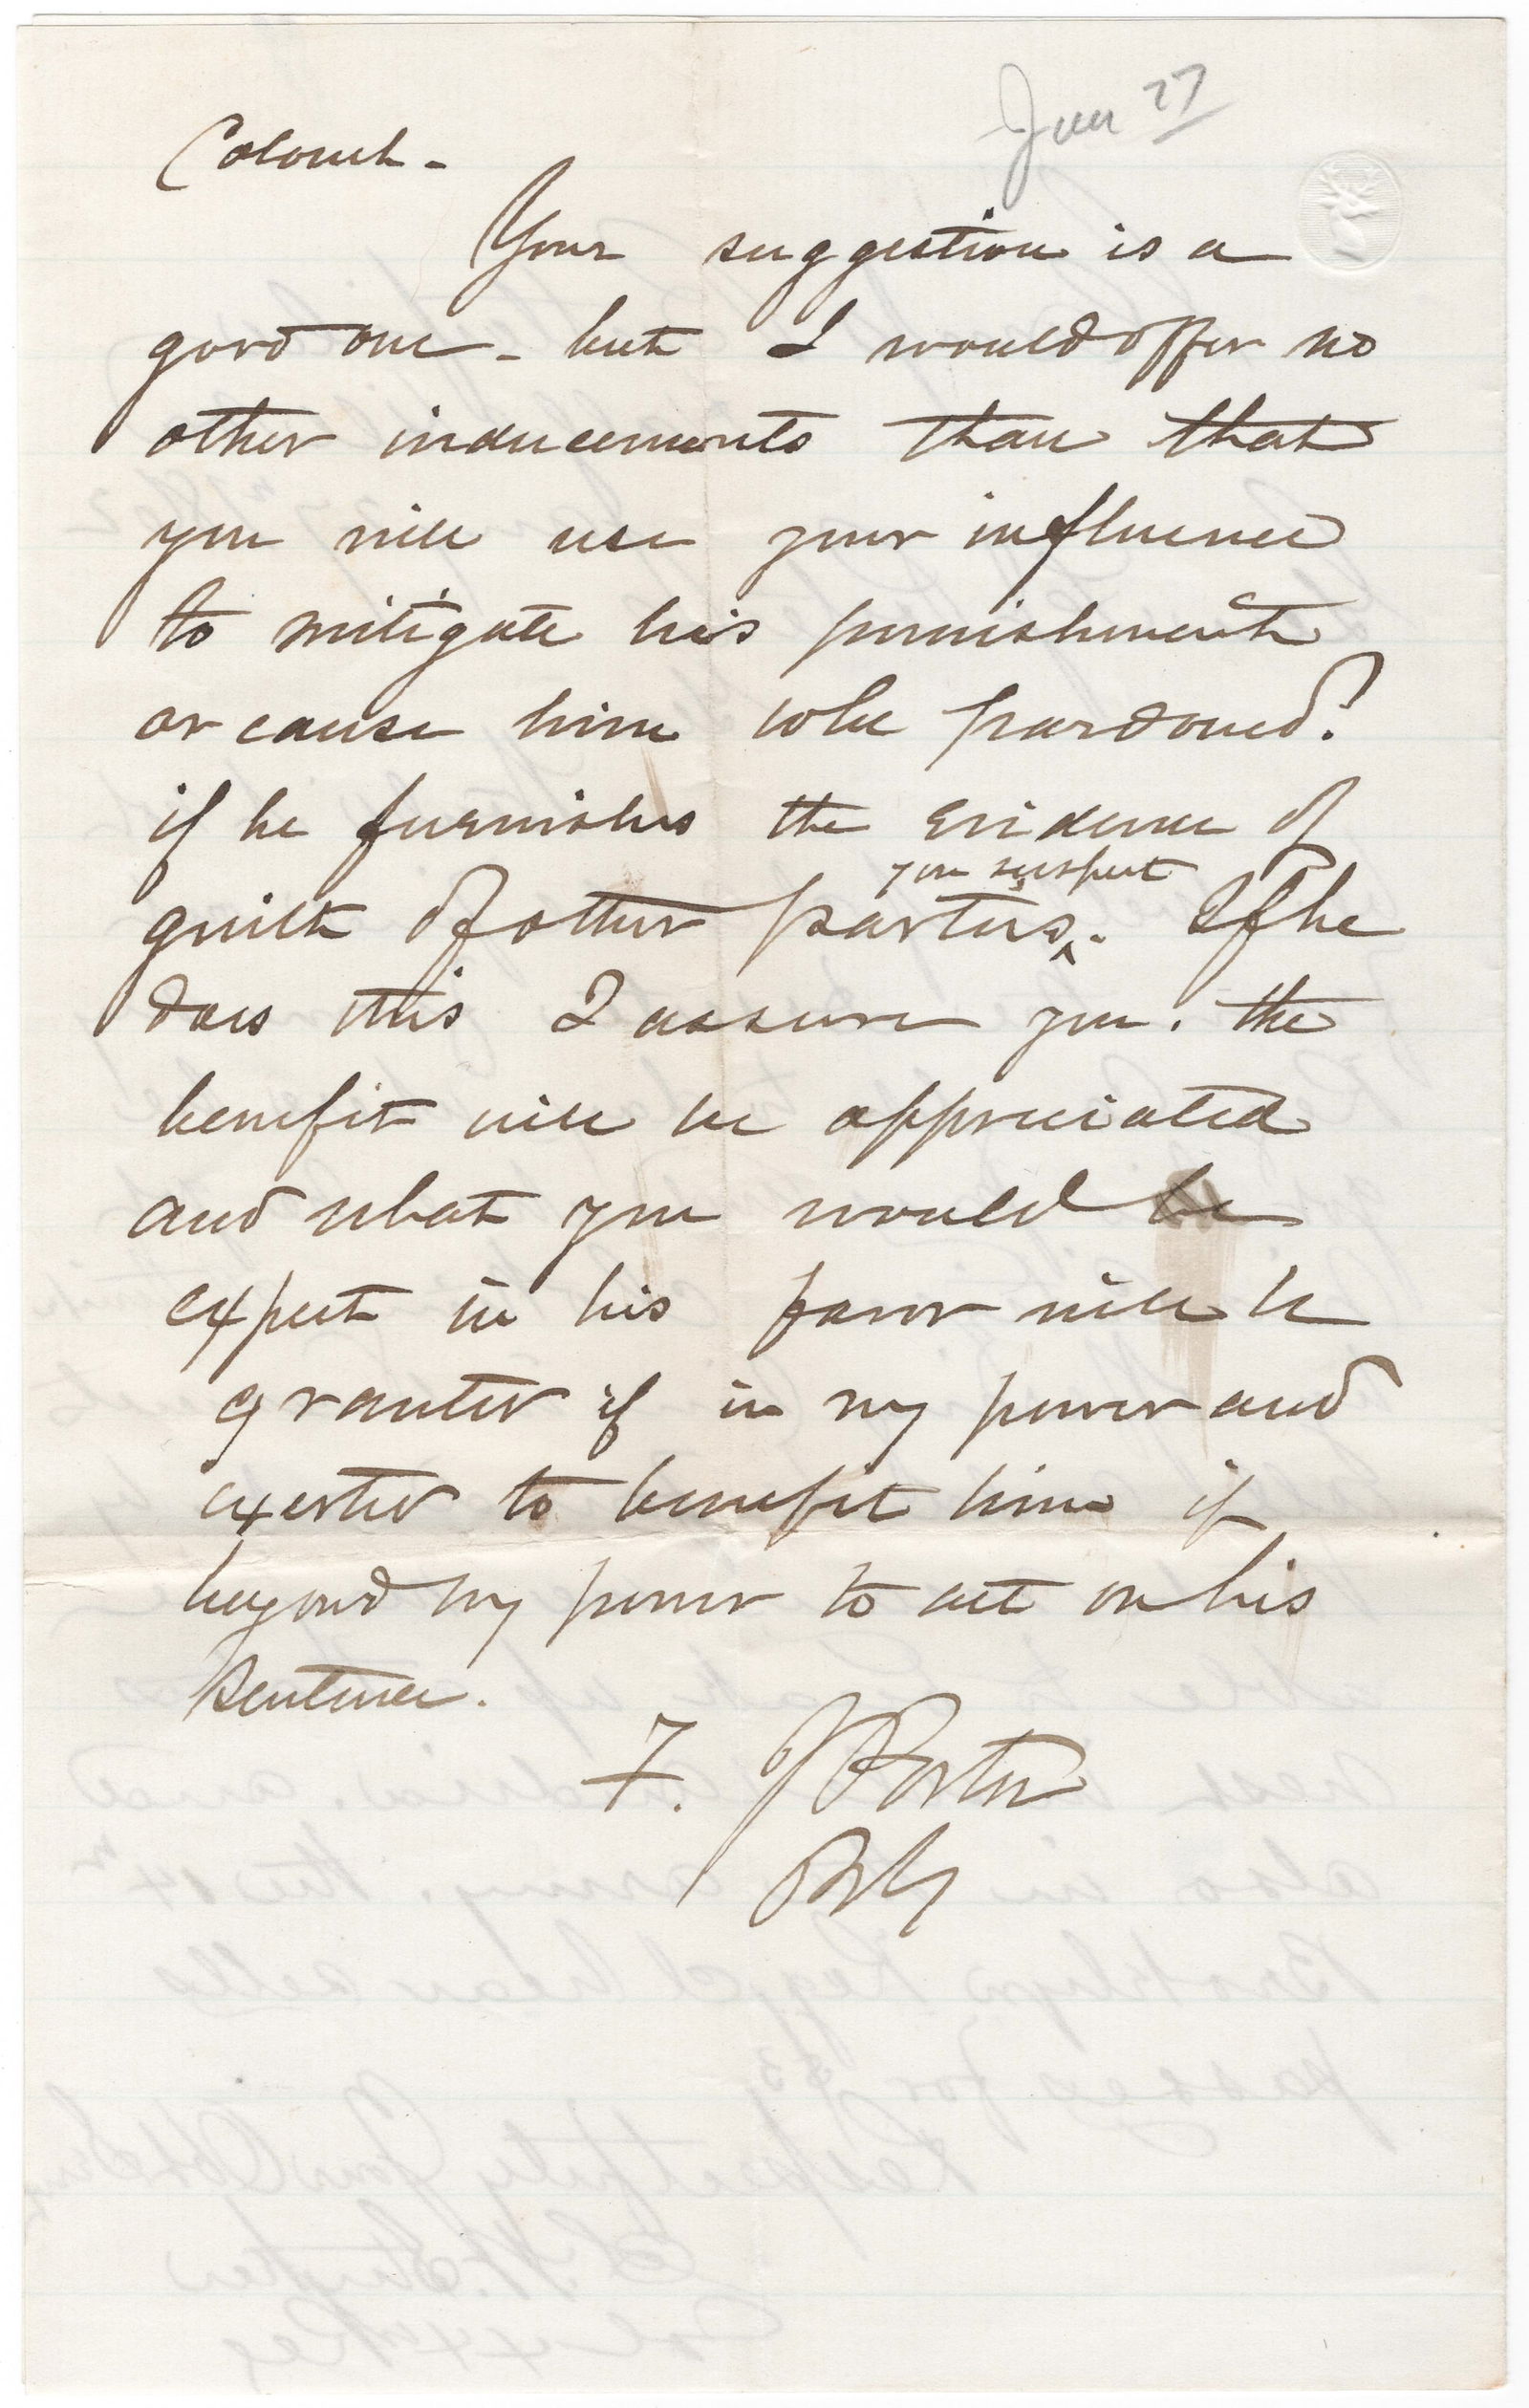 Jan 27
Colonel -
Your suggestion is a
good one - but I would offer no
other inducements than that
you will use your influence
to mitigate his punishment
or cause him to be pardoned?
if he furnishes the evidence of
you suspect
guilt of other parties ^. If he
does this I assure you. the
benefit will be appreciated
and what you would
expect in his favor will be
granted if in my power and
exerted to benefit him if
beyond my power to act on his
sentence.
F. J Porter
B.G